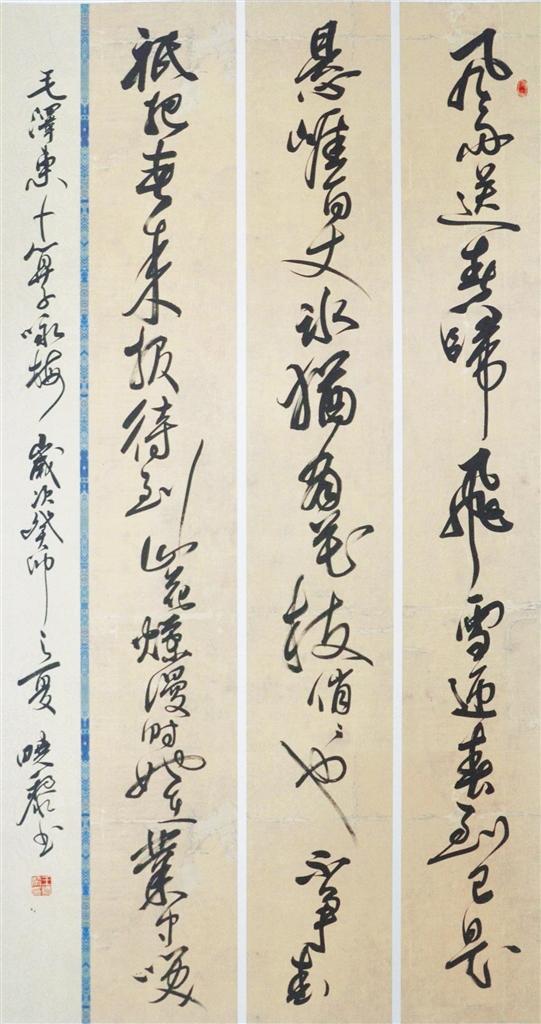 风雨送春歸飛雪迎春到已是
悬崖百丈冰猶有花枝俏〻也不争春
祗把春来报待到山花爛漫时她在叢中咲
毛澤東卜算子咏梅 歲次癸卯之夏 曉黎书